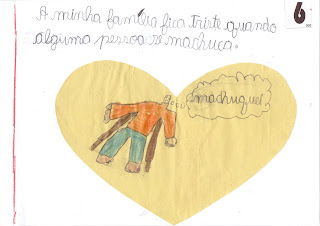 A minha família fica triste quando
alguma pessoa se machuca.
6
machuquei